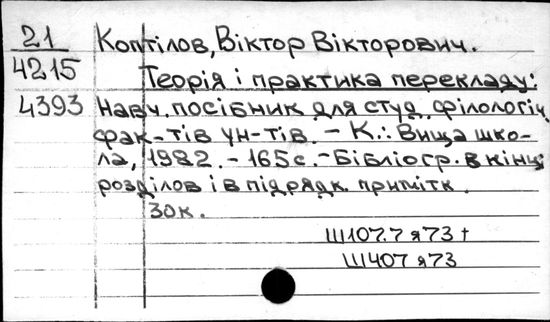 21 Коптілов, Віктор Вікторович.
4215 Теорія і практика перекладу:
4393 Навч. посібник для студ. філологіч.
фак-тів ун-тів. – К.: Вища шко-
ла, 1982. – 165 с. – Бібліогр. в кінці
розділов і в підрядк. примітк.
30к.
Ш107.7 я73 +
Ш407 я73